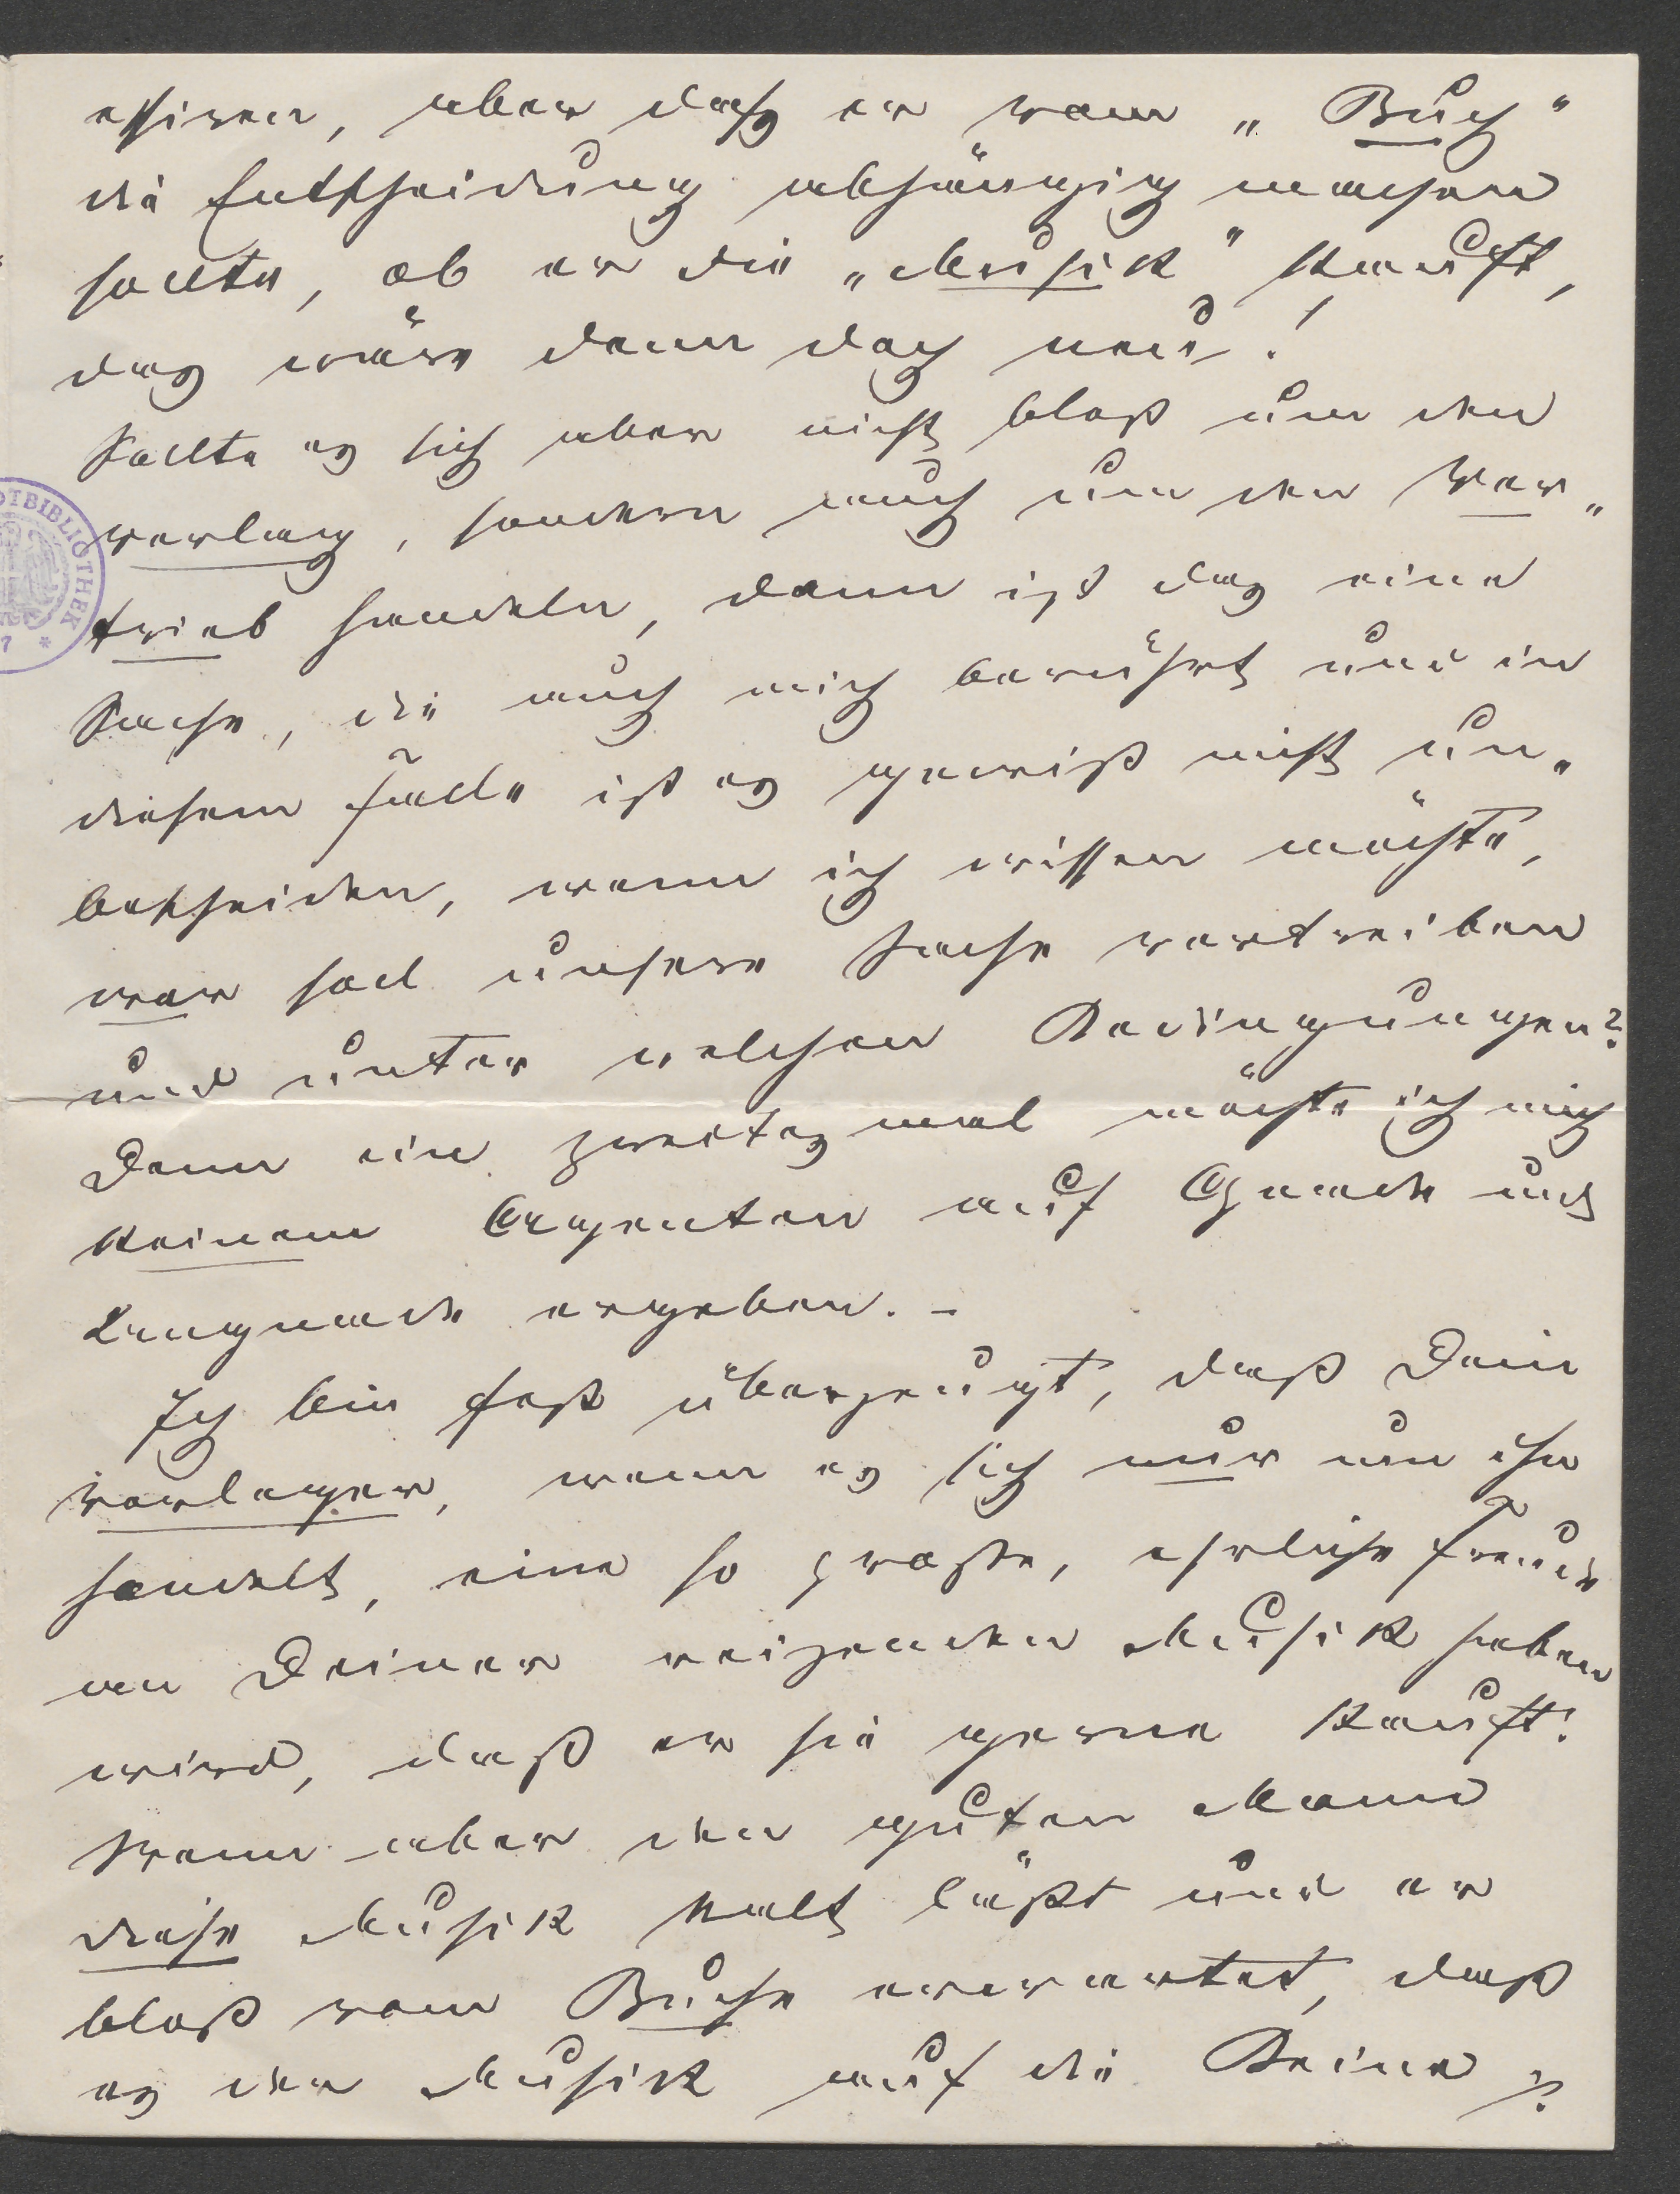 essiren, aber daß er vom „Buch“
die Entscheidung abhängig machen
sollte, ob er die „Musik“ kauft,
das wäre denn doch neu!
Sollte es sich aber nicht bloß um den
Verlag, sondern auch um den Ver„
trieb handeln, dann ist das eine
Sache, die auch mich berührt und in
diesem Falle ist es gewiß nicht un„
bescheiden, wenn ich wissen möchte,
wer soll unsere Sache vertreiben
und unter welchen Bedingungen?
Denn ein zweites mal möchte ich mich
keinem Agenten auf Gnade und
Ungnade ergeben. –
Ich bin fest überzeugt, daß Dein
Verleger, wenn es sich nur um ihn
handelt, eine so große, ehrliche Freude
an Deiner reizenden Musik haben
wird, daß er sie gerne kauft!
Wenn aber den guten Mann
diese Musik kalt läßt und er
bloß vom Buche erwartet, daß
es der Musik auf die Beine
OTBIBLIOTHEK